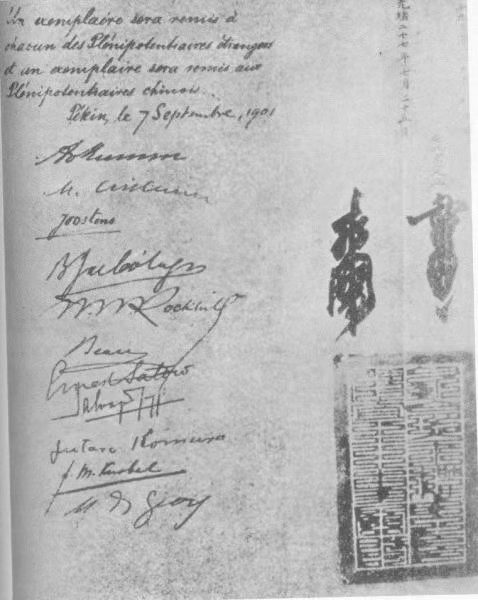 Un exemplaire sera remis à
chacun des Plénipotentiaires étrangers
et un exemplaire sera remis aux
Plénipotentiaires chinois.
Pékin, le 7 Septembre, 1901
A. v Mumm
M. Czikann
Joostens
B J de Cólogan
W. W. Rockhill
Beau
Ernest Satow
Salvago
Jutaro Komura
F. M. Knobel
M de Giers
光緒二十七年七月二十五日